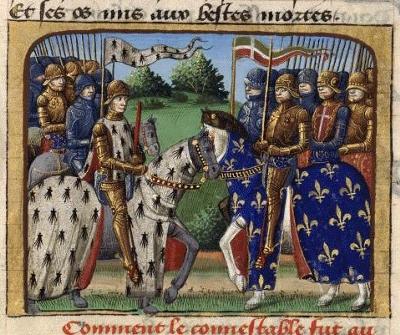 Et ses os mis aux bestes mortes.
Comment le connestable fut au